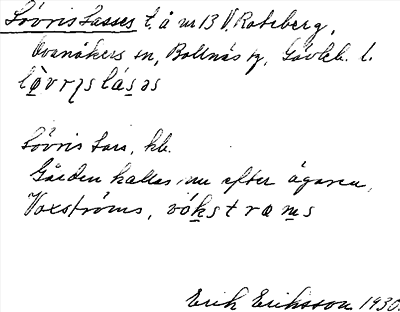 Lövris Lasses t. å nr 13 V. Roteberg,
Ovanåkers sn, Bollnäs tg, Gävleb. l.
Lövris Lars, kb.
Gården kallas nu efter ägaren,
Voxströms, vókstrøms
Erik Eriksson 1930.